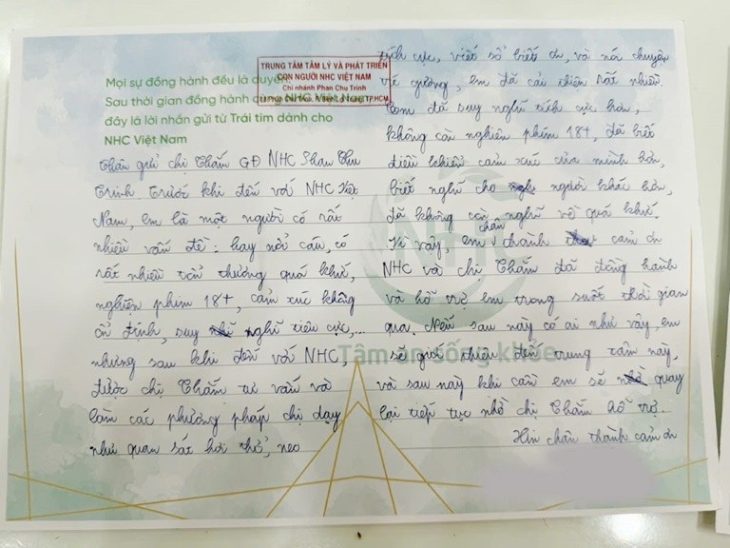 Mọi sự đồng hành đều là duyên
Sau thời gian đồng hành cùng NHC Việt Nam,
đây là lời nhắn gửi từ Trái tim dành cho
NHC Việt Nam
TRUNG TÂM TÂM LÝ VÀ PHÁT TRIỂN
CON NGƯỜI NHC VIỆT NAM
Chi nhánh Phan Chu Trinh
Thân gửi chị Thắm GĐ NHC Phan Chu
Trinh Trước khi đến với NHC Việt
Nam, em là một người có rất
nhiều vấn đề: hay nổi cáu, có
rất nhiều tổn thương quá khứ,
nghiện phim 18+, cảm xúc không
ổn định, suy nghĩ tiêu cực,...
nhưng sau khi đến với NHC,
được chị Thắm tư vấn và
làm các phương pháp chị dạy
như quan sát hơi thở, neo
tích cực, viết sổ biết ơn, và nói chuyện
về gương, em đã cải thiện rất nhiều.
Em đã suy nghĩ tích cực hơn,
không còn nghiện phim 18+, đã biết
điều khiển cảm xúc của mình hơn,
biết nghĩ cho người khác hơn,
đã không còn nghĩ về quá khứ.
Vì vậy, em chân thành cảm ơn
NHC và chị Thắm đã đồng hành
và hỗ trợ em trong suốt thời gian
qua. Nếu sau này có ai như vậy, em
sẽ giới thiệu đến trung tâm này,
và sau này khi cần em sẽ quay
lại tiếp tục nhờ chị Thắm hỗ trợ.
Xin chân thành cảm ơn
NH
Tâm an sống khỏe